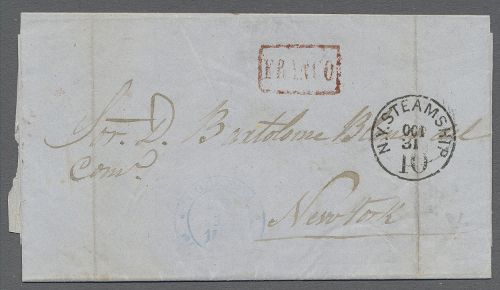 FRANCO
N.Y. STEAMSHIP
OCT
31
10
Sor. D. Bartolome
Comº.
New York